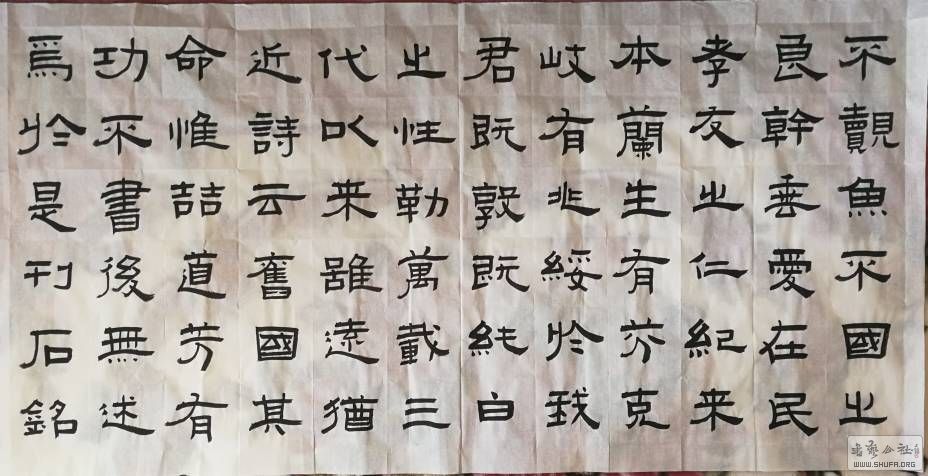 不覿魚不國之
良幹垂愛在民
孝友之仁紀来
本蘭生有芬克
岐有兆綏於我
君既敦既純白
之性勒萬載三
代以来雖遠猶
近詩云舊國其
命惟喆道芳有
功不書後無述
焉於是刊石銘
WWW.SHUFA.ORG